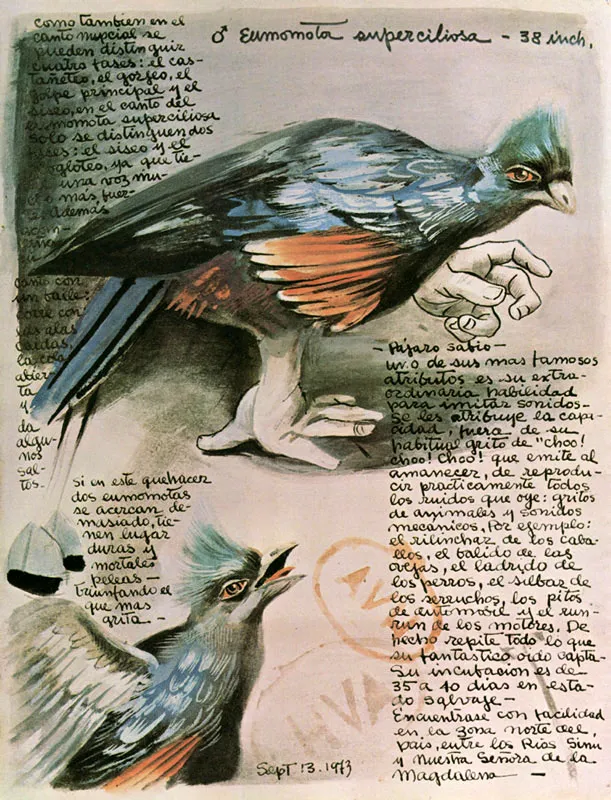 como tambien en el
canto nupcial se
pueden distinguir
cuatro fases: el cas-
tañeteo, el gorjeo, el
golpe principal y el
siseo, en el canto del
eumomota superciliosa
solo se distinguen dos
fases: el siseo y el
gloteo, ya que tie-
una voz mu-
mas fuer-
te. Ademas
acom-
canto con
un baile:
corre con
las alas
caidas,
la cola
abier-
ta
y
da
algu-
nos
sal-
tos.
♂ Eumomota superciliosa - 38 inch.
- Pajaro Sabio -
uno de sus mas famosos
atributos es su extra-
ordinaria habilidad
para imitar sonidos-
Se les atribuye la capa-
cidad, fuera de su
habitual grito de "choo!
choo! Choo! que emite al
amanecer, de reprodu-
cir practicamente todos
los ruidos que oye: gritos
de animales y sonidos
mecanicos, Por ejemplo:
el rilinchar de los caba-
llos, el balido de las
ovejas, el ladrido de
los perros, el silbar de
los serenchos, los pitos
de automovil y el run-
run de los motores. De
hecho repite todo lo que
su fantastico oido capta-
Su incubacion es de
35 a 40 dias en esta-
do salvaje-
Encuentrase con facilidad
en la zona norte del
pais, entre los Rios Sinu
y Nuestra Señora de la
Magdalena -
si en este quehacer
dos eumomotas
se acercan de-
masiado, tie-
nen lugar
duras y
mortales
peleas -
triunfando el
que mas
grita -
AVE
Sept 13. 1973